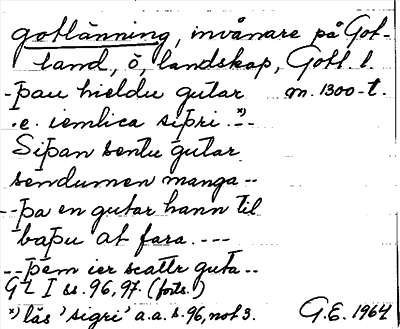 gotlänning, invånare på Got-
land, ö, landskap, Gotl. l.
-þau hieldu gutar m. 1300-t.
.e. iemlica siþri.--*)
Siþan sentu gutar
sendumen manga--
--þa en gutar hann til
baþu at fara.---
--þem ier scattr guta--
GL I ss. 96, 97. (forts.)
*) läs 'sigri' a.a. s. 96, not 3. G.E. 1964